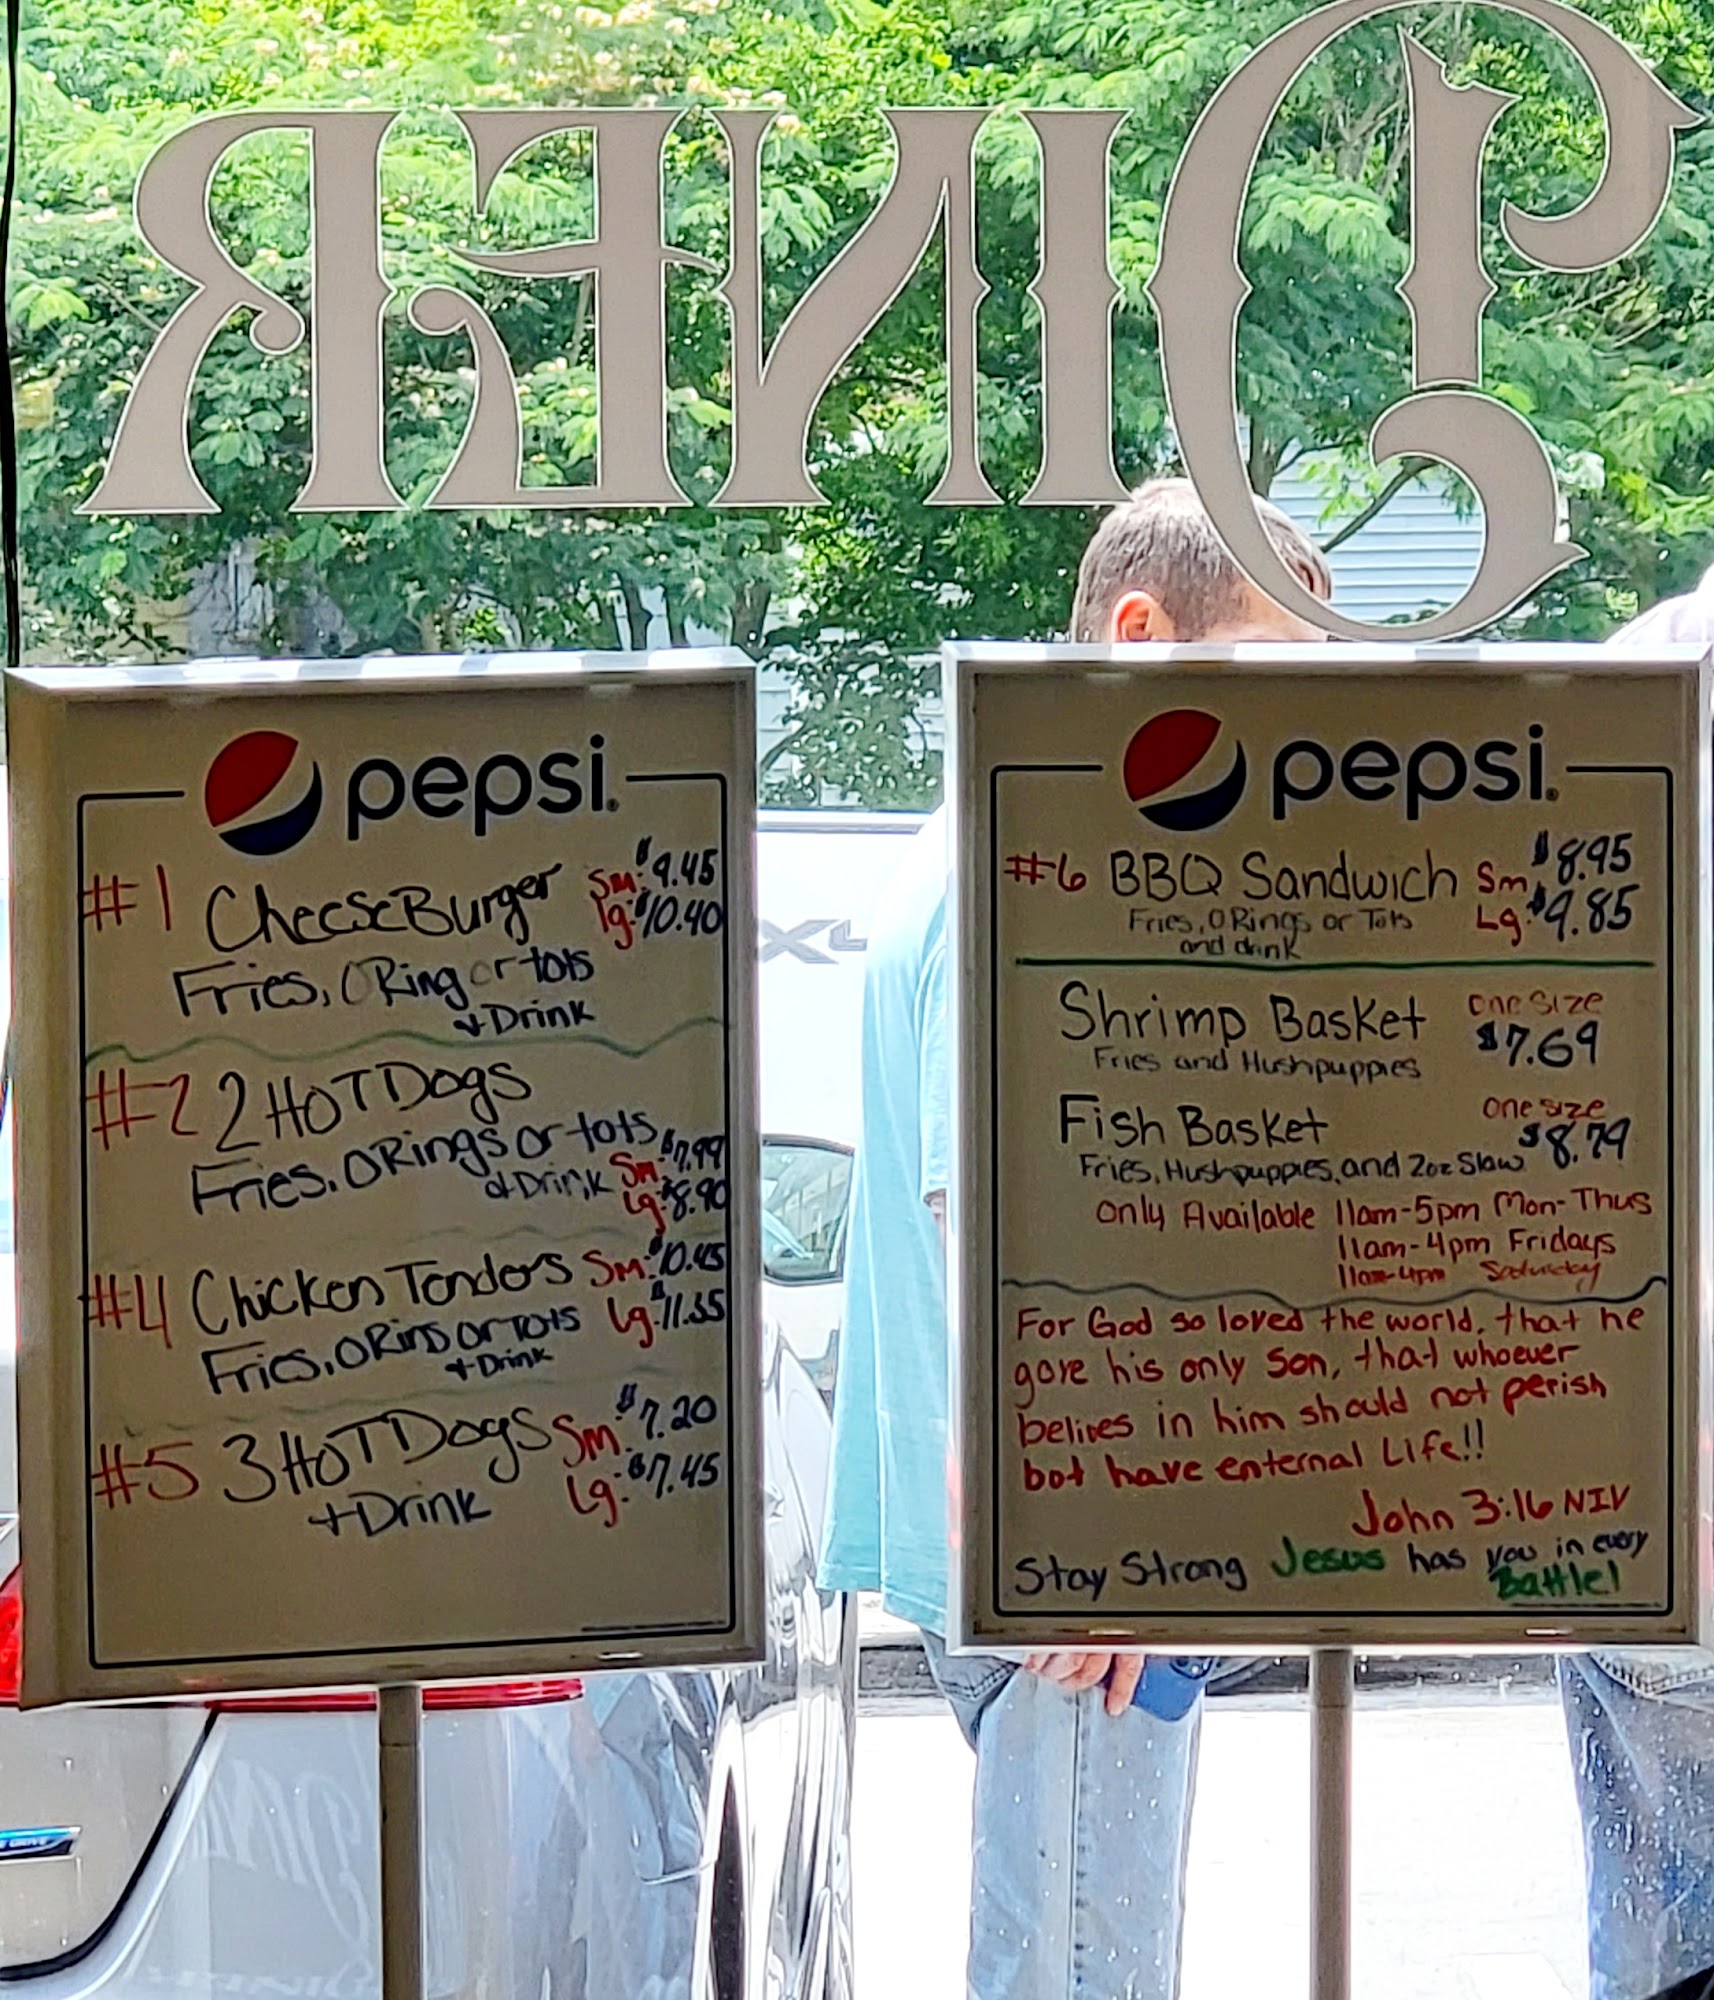 DINER
pepsi
#1 CheeseBurger Sm: $9.45
lg: $10.40
Fries, O Ring or tots
+ Drink
#2 2 HOT Dogs
Fries, O Rings or tots Sm: $7.99
+ Drink Lg: $8.90
#4 Chicken Tenders Sm: $10.45
Fries, O Rins or Tots Lg: $11.35
+ Drink
#5 3 HOT Dogs Sm: $7.20
+ Drink Lg: $7.45
pepsi
#6 BBQ Sandwich Sm $8.95
Fries, O Rings or Tots Lg: $9.85
and drink
Shrimp Basket one size
Fries and Hushpuppies $7.69
Fish Basket one size
Fries, Hushpuppies, and 2oz Slaw $8.79
Only Available 11am-5pm Mon-Thus
11am-4pm Fridays
11am-4pm Saturday
For God so loved the world, that he
gave his only son, that whoever
belives in him should not perish
bot have enternal Life!!
John 3:16 NIV
Stay Strong Jesus has you in every
Battle!
XL